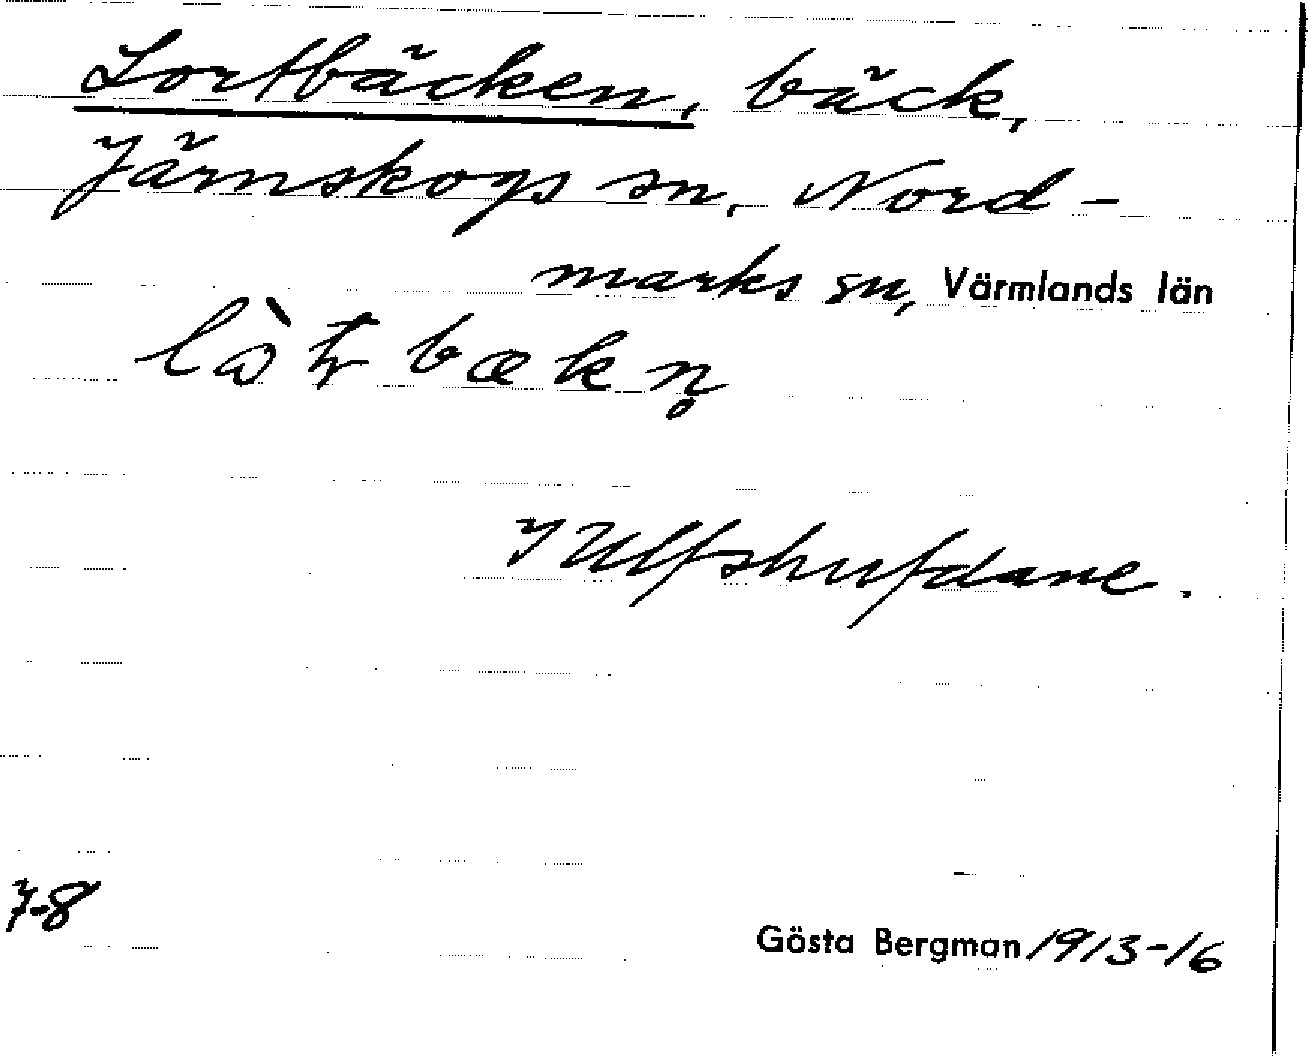 Lortbäcken, bäck,
Järnskogs sn, Nord-
marks sn, Värmlands län
lòʈbækn̥
I Ulfshufdane.
7-8
Gösta Bergman 1913-16